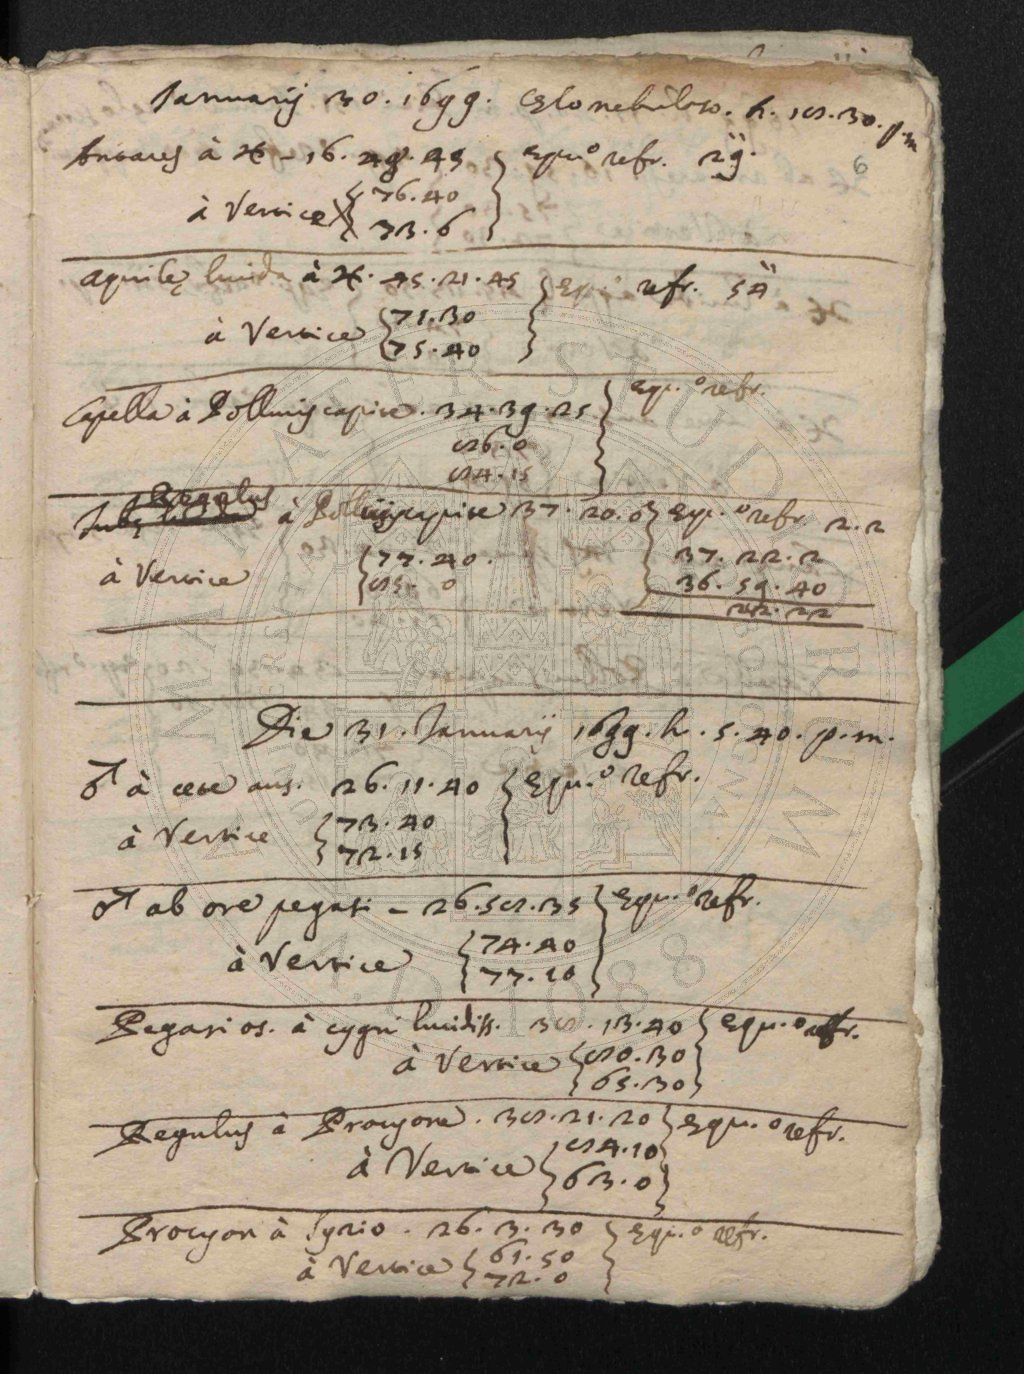 Januarij 30. 1699. Cælo nebuloso. h. 18. 30. p. m
6
Antares à ♃ – 16. 48. 45 } Equ.º refr. 29"
à Vertice { 76. 40
73. 6
Aquilę lucida à ♃. 45. 21. 45 } Equ.º refr. 54"
à Vertice { 71. 30
75. 40
Capella à Pollucis capite. 34. 39. 25 } Equ.º refr.
86. 0
84. 15
Regulus
à Pollucis capite 37. 20. 0 } Equ.º refr 2. 2
{ 77. 40. 37. 22. 2
à Vertice 85. 0 36. 59. 40
22. 22
Die 31. Januarij 1699. h. 5. 40. p. m.
♂ à cete aus. 26. 11. 40 } Equ.º refr.
à Vertice { 73. 40
72. 15
♂ ab ore pegasi – 26. 58. 35 } Equ.º refr.
à Vertice { 74. 40
77. 10
Pegasi os. à cygni lucidiss. 38. 13. 40 } Equ.º refr.
à Vertice { 80. 30
65. 30
Regulus à Procyone. 38. 21. 20 } Equ.º refr.
à Vertice { 84. 10
63. 0
Procyon à Syrio. 26. 3. 30 } Equ.º refr.
à Vertice { 61. 50
72. 0
ALMA MATER STUDIORUM
A.D. 1088